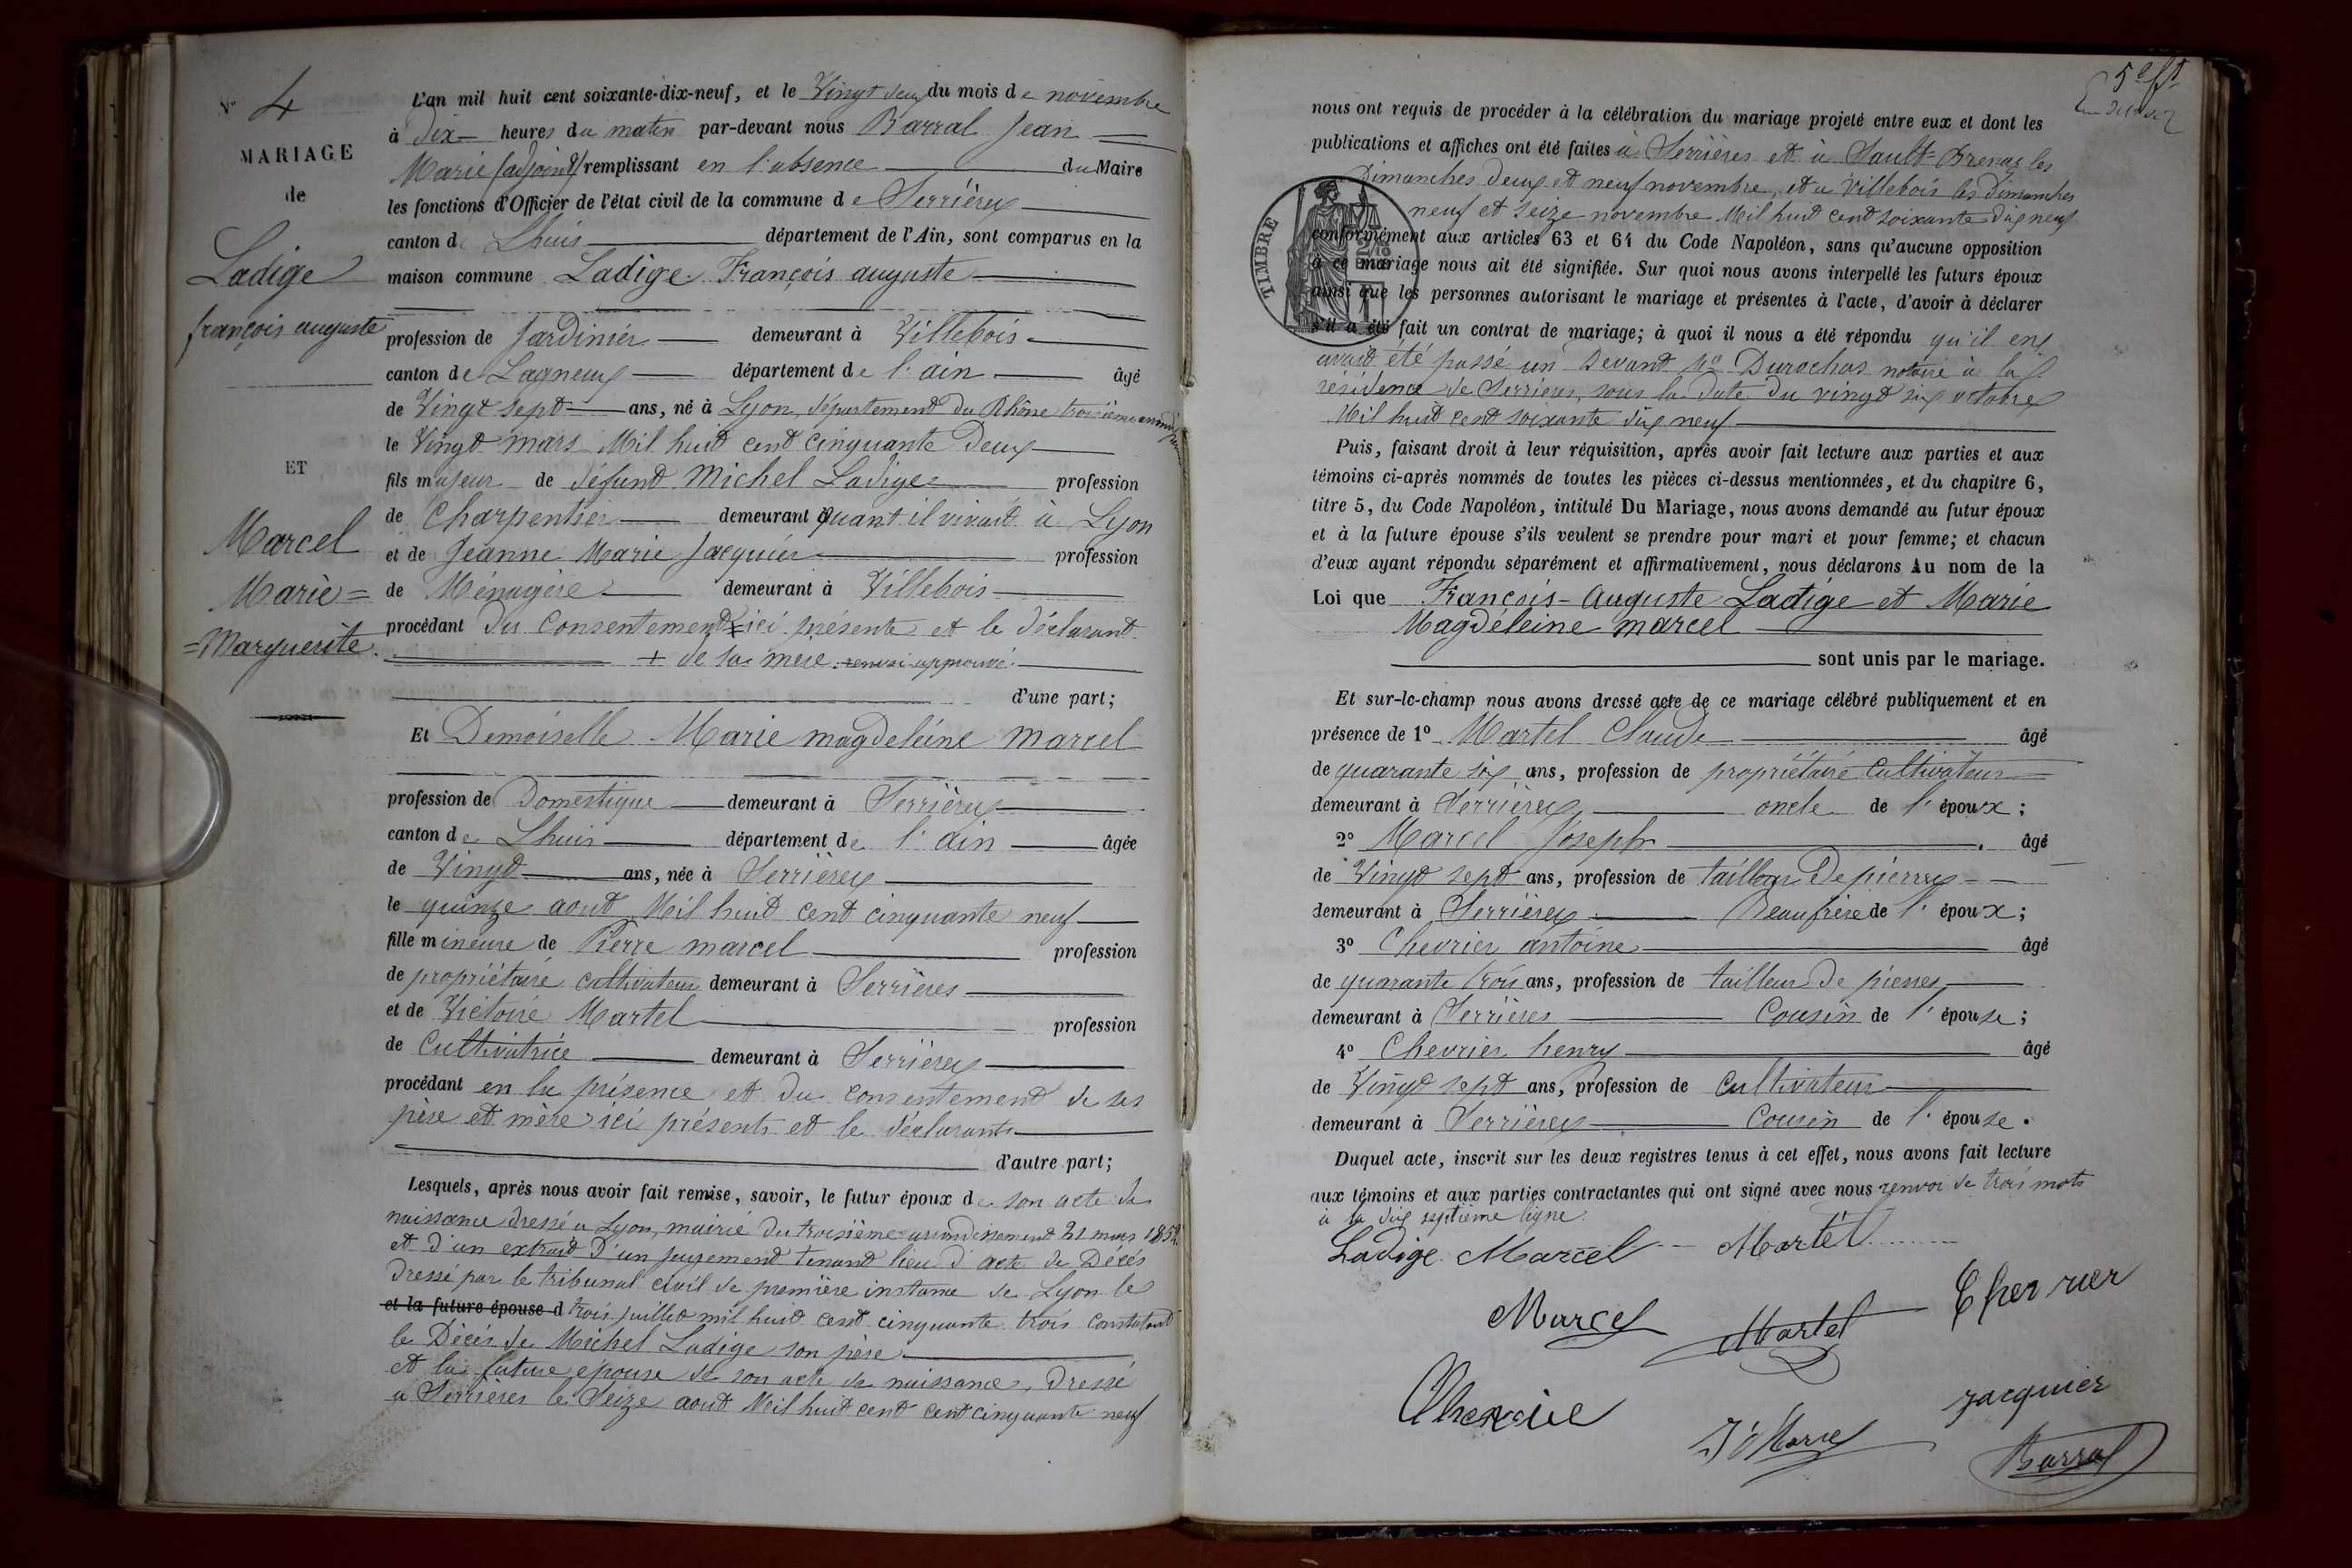 N° 4
MARIAGE
de
Ladige
françois auguste
ET
Marcel
Marie =
= Marguerite.
L'an mil huit cent soixante-dix-neuf, et le Vingt deux du mois de novembre
à dix heures du matin par-devant nous Barral Jean
Marie (adjoint) remplissant en l'absence du Maire
les fonctions d'Officier de l'état civil de la commune de Serrières
canton de Lhuis département de l'Ain, sont comparus en la
maison commune Ladige François auguste
profession de Jardinier demeurant à Villebois
canton de Lagneux département de l'ain âgé
de Vingt sept ans, né à Lyon, département du Rhône troisième
le Vingt mars Mil huit cent cinquante Deux
fils majeur de défunt Michel Ladige profession
de Charpentier demeurant quant il vivait à Lyon
et de Jeanne Marie Jacquier profession
de Ménagère demeurant à Villebois
procédant du Consentement + ici présente et le déclarant
+ de sa mère. renvoi approuvé.
d'une part;
Et Demoiselle Marie magdeleine Marcel
profession de Domestique demeurant à Serrières
canton de Lhuis département de l'ain âgée
de Vingt ans, née à Serrières
le quinze aout Mil huit cent cinquante neuf
fille mineure de Pierre marcel profession
de propriétaire cultivateur demeurant à Serrières
et de Victoire Martel profession
de Cultivatrice demeurant à Serrières
procédant en la présence et du consentement de ses
père et mère ici présents et le déclarants
d'autre part;
Lesquels, après nous avoir fait remise, savoir, le futur époux de son acte de
naissance dressé a Lyon, mairie du troisième arrondissement 21 mars 1852
et d'un extrait d'un jugement tenant lieu d'acte de Décés
dressé par le tribunal civil de première instance de Lyon le
et la future épouse d trois juillet mil huit cent cinquante trois constatant
le Décés de Michel Ladige son père
et la future épouse de son acte de naissance, dressé
a Serrières le Seize aout Mil huit cent cent cinquante neuf
5e ft
nous ont requis de procéder à la célébration du mariage projeté entre eux et dont les
publications et affiches ont été faites à Serrières et à Sault=Brenaz les
Dimanches deux et neuf novembre, et a Villebois les Dimanches
neuf et seize novembre Mil huit cent soixante dix neuf
TIMBRE
conformément aux articles 63 et 64 du Code Napoléon, sans qu'aucune opposition
à ce mariage nous ait été signifiée. Sur quoi nous avons interpellé les futurs époux
ainsi que les personnes autorisant le mariage et présentes à l'acte, d'avoir à déclarer
s'il a été fait un contrat de mariage; à quoi il nous a été répondu qu'il en
avait été passé un devant Me Durochas notaire à la
résidence de Serrières, sous la date du vingt six octobre
Mil huit cent soixante dix neuf
Puis, faisant droit à leur réquisition, après avoir fait lecture aux parties et aux
témoins ci-après nommés de toutes les pièces ci-dessus mentionnées, et du chapitre 6,
titre 5, du Code Napoléon, intitulé Du Mariage, nous avons demandé au futur époux
et à la future épouse s'ils veulent se prendre pour mari et pour femme; et chacun
d'eux ayant répondu séparément et affirmativement, nous déclarons Au nom de la
Loi que François-Auguste Ladige et Marie
Magdeleine marcel
sont unis par le mariage.
Et sur-le-champ nous avons dressé acte de ce mariage célébré publiquement et en
présence de 1° Martel Claude âgé
de quarante six ans, profession de propriétaire cultivateur
demeurant à Serrières oncle de l'époux;
2° Marcel Joseph âgé
de Vingt sept ans, profession de tailleur De pierres
demeurant à Serrières Beaufrère de l'époux;
3° Chevrier antoine âgé
de quarante trois ans, profession de tailleur De pierres
demeurant à Serrières Cousin de l'épouse;
4° Chevrier henry âgé
de Vingt sept ans, profession de cultivateur
demeurant à Serrières Cousin de l'épouse.
Duquel acte, inscrit sur les deux registres tenus à cet effet, nous avons fait lecture
aux témoins et aux parties contractantes qui ont signé avec nous renvoi de trois mots
à la dix septième ligne.
Ladige Marcel Martel
Marcel Martel Chevrier
jacquier
Barral